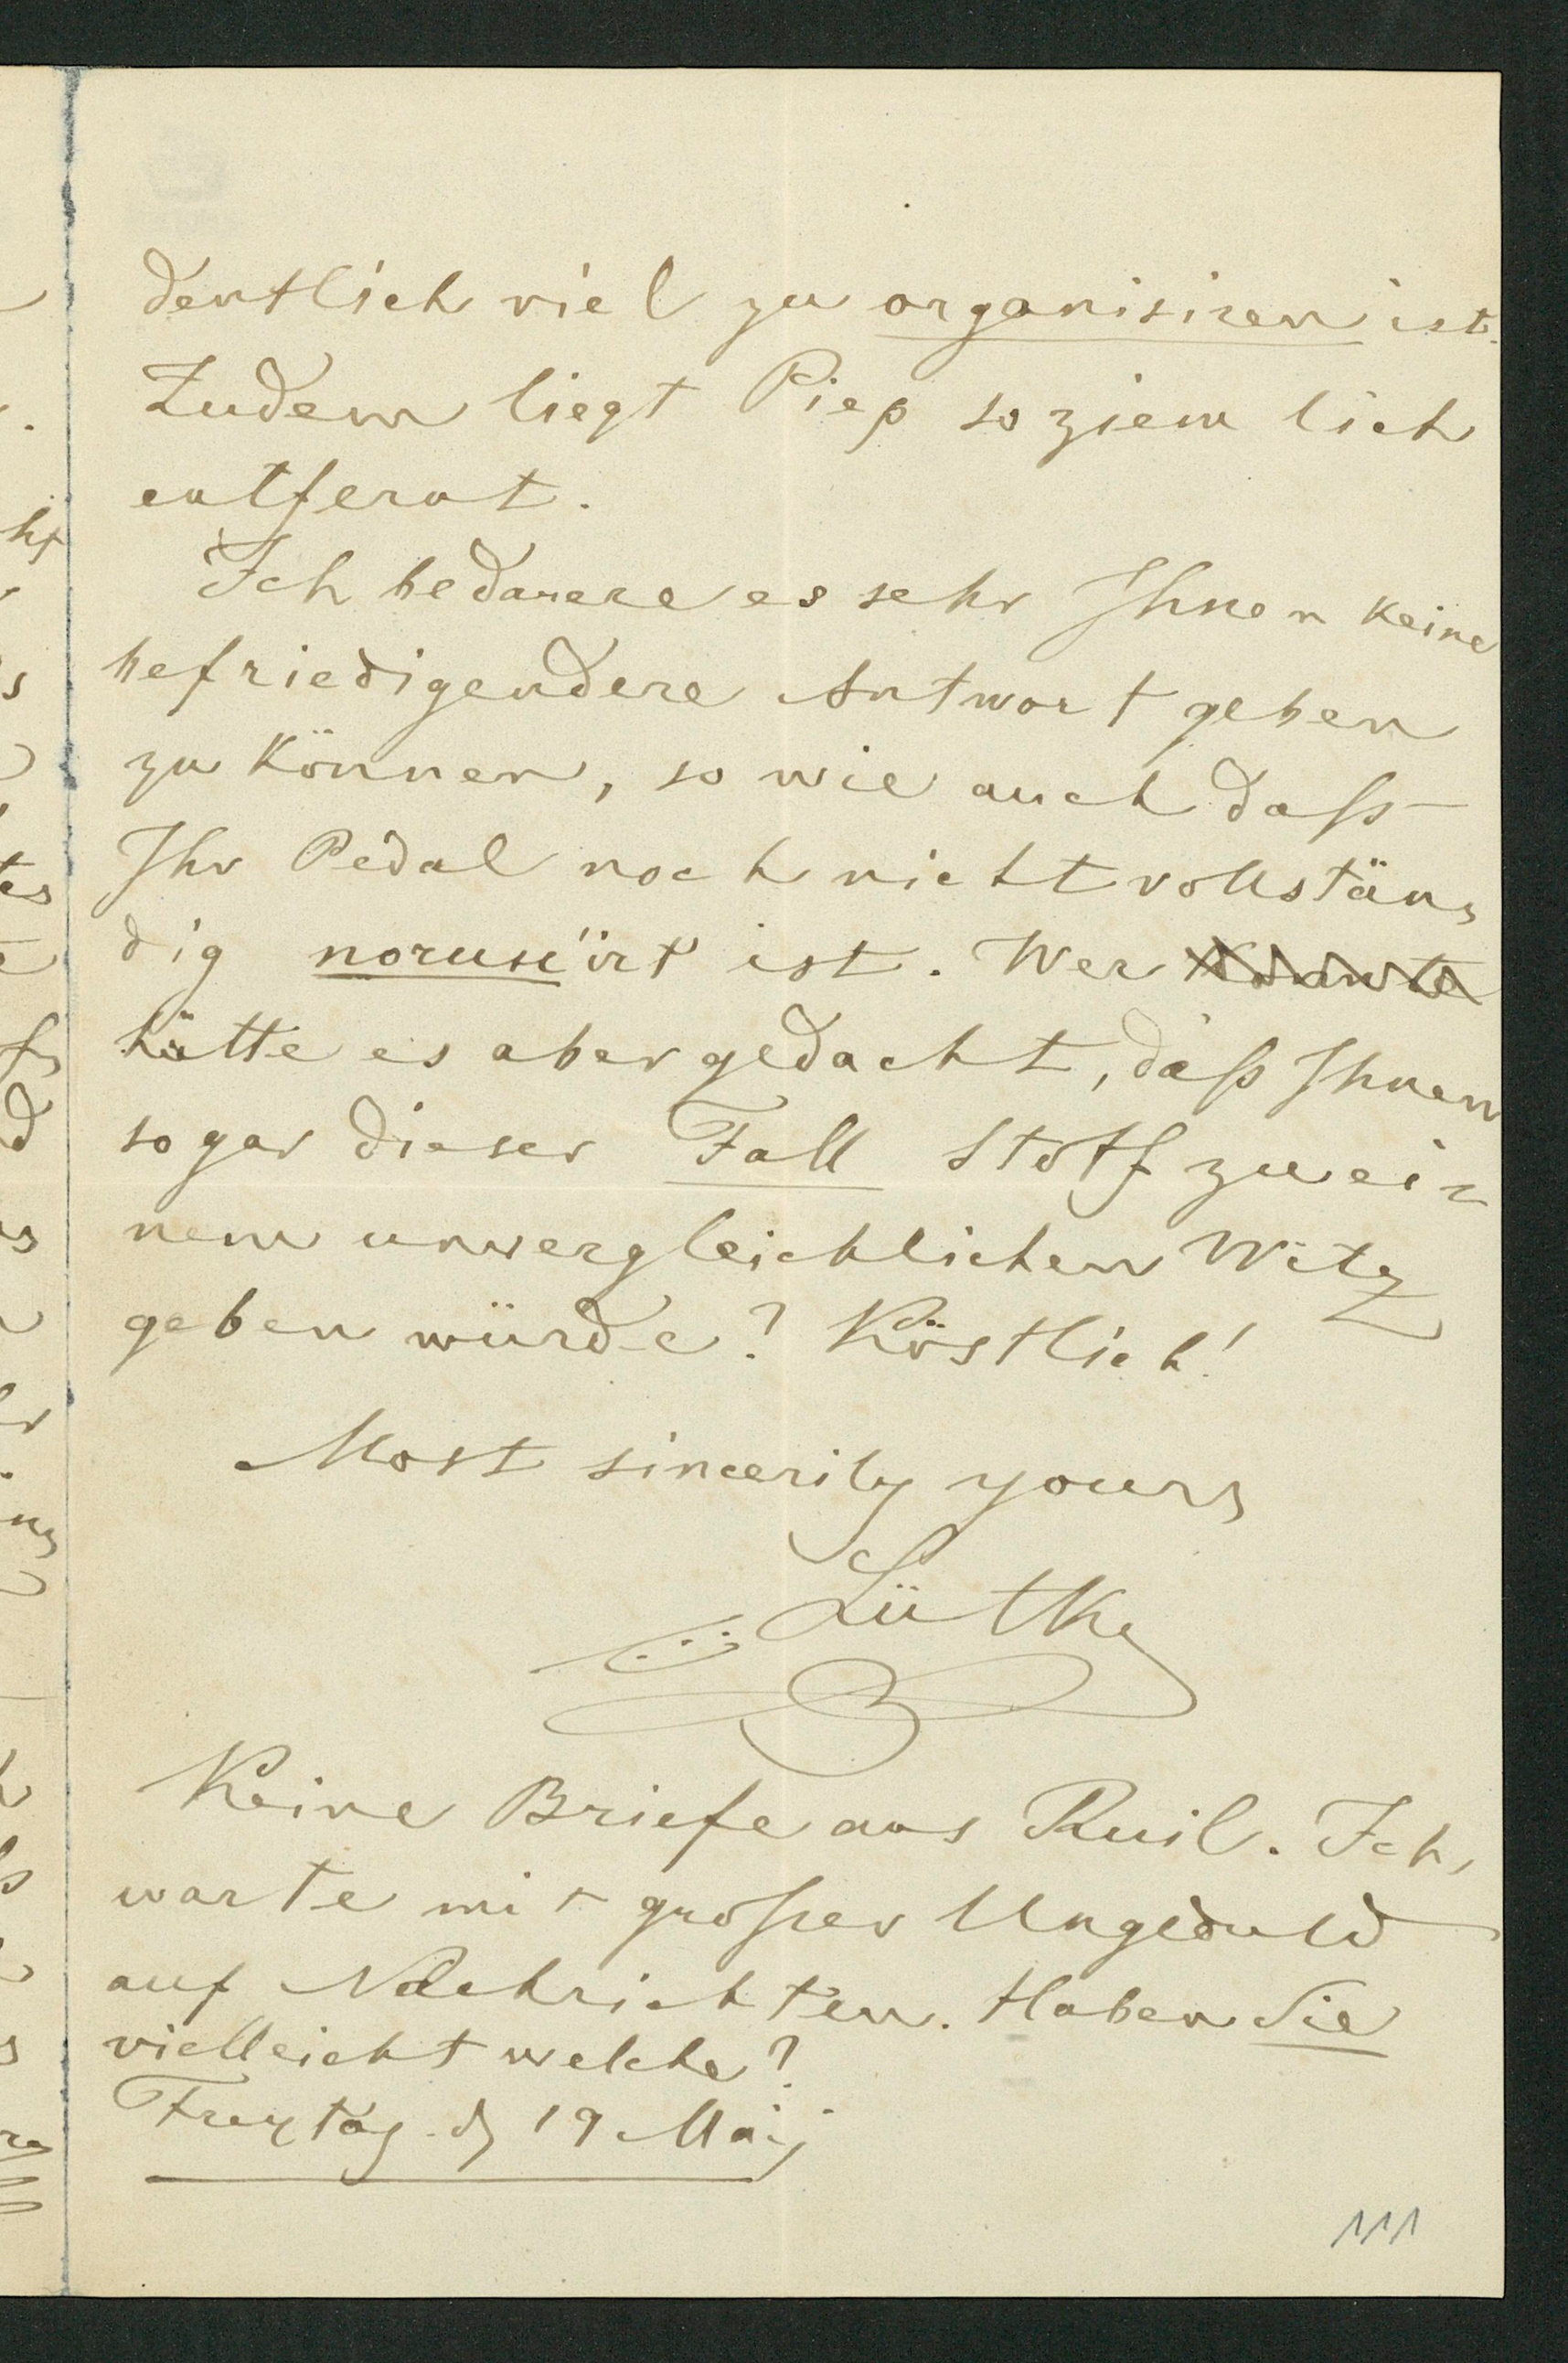 dentlich viel zu organisiren ist.
Zudem liegt Piep so ziem lich
entfernt.
Ich bedauere es sehr Ihnen keine
befriedigendere Antwort geben
zu können, so wie auch daß
Ihr Pedal noch nicht vollstän-
dig ist. Wer
hätte es aber gedacht, daß Ihnen
sogar dieser Fall Stoff zu ei-
nem unvergleichlichen Witz
geben würde? Köstlich!
Most sincerily yours
Lütke
Keine Briefe aus Ruil. Ich
warte mit großer Ungeduld
auf Nachrichten. Haben Sie
vielleicht welche?
Freytag d 19 Maij
111